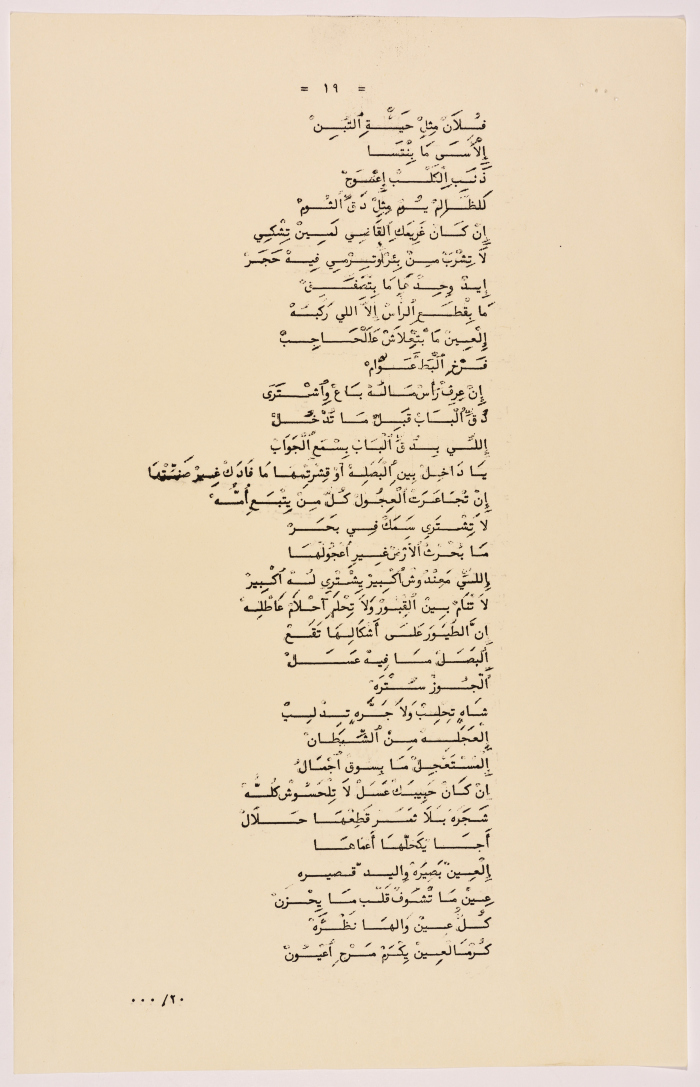 = ١٩ =
فُلَانْ مِثِلْ حَيِّةِ التِّبِنْ
إِلْأَسَى مَا بِنْتَسَا
ذَنَبِ الْكَلْبْ إِعْوَجْ
كَلظَالِمْ يُومْ مِثِلْ دَقِّ الثُّومْ
إِنْ كَانْ غَرِيمَكِ الْقَاضِي لَمِينْ تِشْكِي
لَا تِشْرَبْ مِنْ بِئرْ أَوتِرْمِي فِيهْ حَجَرْ
إِيدْ وِحِدْ مَا بِتْصَفِّقْ
مَا بِقْطَعِ الرَّاسْ إِلَّا اللي رَكَّبُهْ
إِلْعِينْ مَا بْتِعْلَاشْ عَالْحَاجِبْ
فَرْخِ الْبَطْ عَوَّامْ
إِنْ عِرِفْ رَأْسْ مَالُهْ بَاعْ وِاشْتَرَى
دُقِّ الْبَابْ قَبِلْ مَا تُدْخُلْ
إِللِّي بِدُقِّ الْبَابْ بِسْمَعِ الْجَوَابْ
يَا دَاخِلْ بِينِ الْبَصَلِهْ أَوْ قِشْرِتِهَا مَا فَادَكْ غِيرْ صَنِّتْهَا
إِنْ تْجَاعَرَتْ الْعِجُولْ كُلّْ مِنْ يِتْبَعِ أُمُّهْ
لَا تِشْتَرِي سَمَكْ فِي بَحَرْ
مَا بُحْرُثْ الْأَرْضْ غِيرِ اعْجُولْهَا
إِللِّي مَعِنْدُوشْ اكْبِيرْ يِشْتَرِي لُهْ اكْبِيرْ
لَا تْنَامْ بِينِ الْقِبُورْ وَلَا تِحْلَمْ أَحْلَامْ عَاطْلِهْ
إِنَّ الطِّيُورَ عَلَى أَشْكَالِهَا تَقَعْ
إِلْبَصَلْ مَا فِيهْ عَسَلْ
الْجُوزْ سُتْرَهْ
شَاهٍ تِحْلِبْ وَلَا جَرَّهٍ تِدْلِبْ
إِلْعَجَلِهْ مِنْ الشِّيطَانْ
إِلْمُسْتَعْجِلْ مَا بِسوقْ اجْمَالْ
إِنْ كَانْ حَبِيبَكْ عَسَلْ لَا تِلْحَسُوشْ كُلُّهْ
شَجَرَهْ بَلَا ثَمَرْ قَطِعْهَا حَلَالْ
أَجَا يْكَحِّلْهَا أَعْمَاهَا
إِلْعِينْ بَصِيرَهْ وِاليدْ قصيره
عِينْ مَا تْشُوفْ قَلْبْ مَا يِحْزَنْ
كُلّْ عِينْ وَالهَا نَظْرَهْ
كُرْمَا لَعِينْ يِكْرَمْ مَرْجِ أعْيُونْ
٢٠/ ٠٠٠